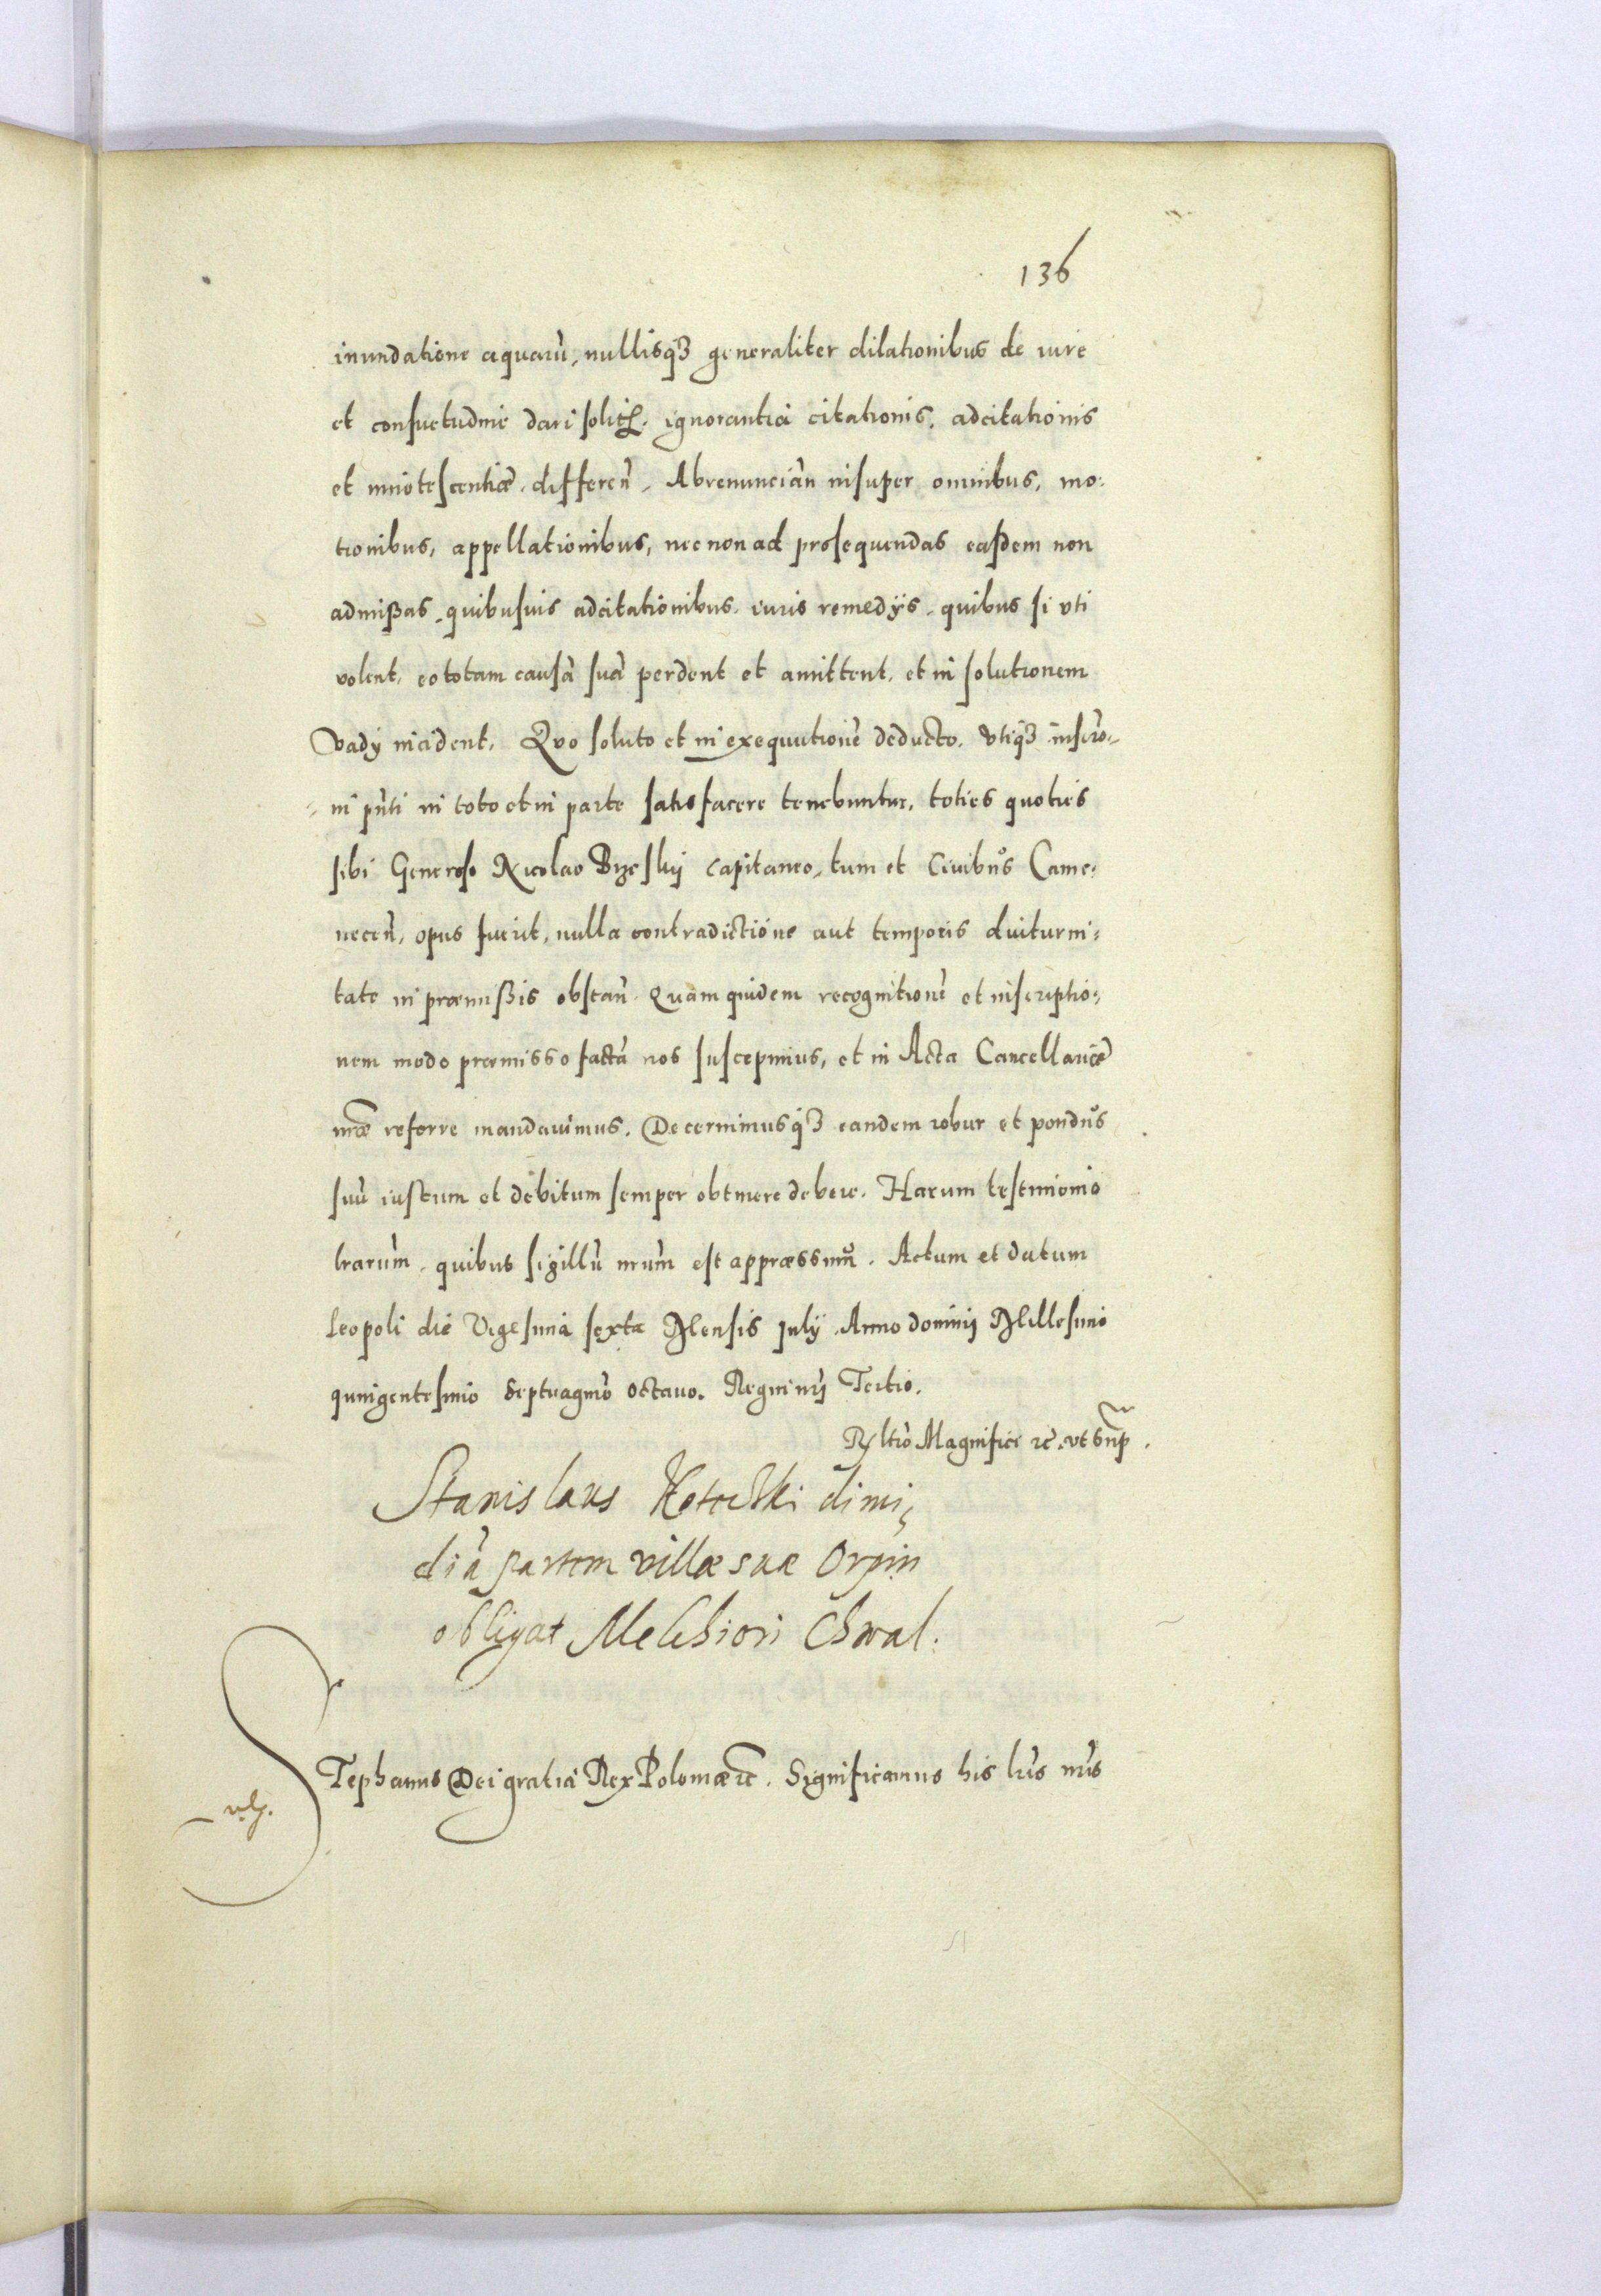 136
inundatione aquarũ, nullisq3 generaliter dilationibus de iure
et consuetudine dari solitis. ignorantia citationis, adcitationis
et innotescentiæ. differeñ. Abrenunciañ insuper omnibus, mo:
tionibus, appellationibus, nec non ad prosequendas easdem non
admißas. quibusuis adcitationibus. iuris remedÿs. quibus si vti
volent. eo totam causã suã perdent et amittent. et in solutionem
Vadÿ incident. Quo soluto et in exequutionẽ deducto. Vtiq3 inscrõ=
ni pñti in toto et in parte satisfacere tenebuntur. toties quoties
sibi Generoso Nicolao Brzeskij Capitaneo, tum et Ciuibus Came:
neceñ, opus fuerit, nulla contradictione aut temporis diuturni:
tate in præmißis obstañ. Quam quidem recognitionẽ et inscriptio:
nem modo præmisso factã nos suscepimus, et in Acta Cancellariæ
nr̃æ referre mandauimus. Decernimusq3 eandem robur et pondus
suũ iustum et debitum semper obtinere debere. Harum testimonio
lrarum. quibus sigillũ nrũm est appræssum. Actum et datum
Leopoli die Vigesima sexta Mensis Julÿ Anno dominij Millesimo
quingentesimo Septuagmõ Octauo. Regni nrĩ Tertio.
Rltiõ Magnifici rc̃. vt sup̃.
Stanislaus dimi,
diã partem villæ suæ Orÿin
obligat Melchiori Chwal.
STephanus Dei gratia Rex Poloniæ rc̃. Significamus his lrĩs nrĩs